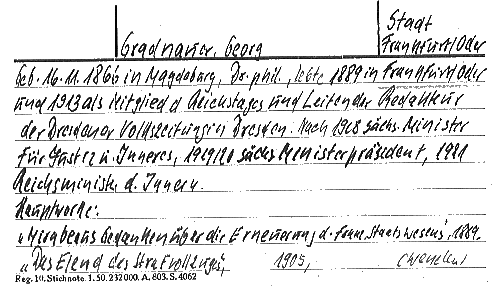 Stadt
Gradnauer, Georg Frankfurt/Oder
Geb. 16.11.1866 in Magdeburg, Dr. phil., lebte 1889 in Frankfurt/Oder
und 1913 als Mitglied d. Reichstages und Leitender Redakteur
der Dresdener Volkszeitung in Dresden. Nach 1918 sächs. Minister
für Justiz u. Inneres, 1919/20 sächs. Ministerpräsident, 1921
Reichsminister d. Innern.
Hauptwerke:
"Mirabeaus Gedanken über die Erneuerung d. franz. Staatswesens", 1889.
"Das Elend des Strafvollzuges", 1905,
Reg. 10. Stichnote. 1. 50. 232000. A. 803. S. 4062